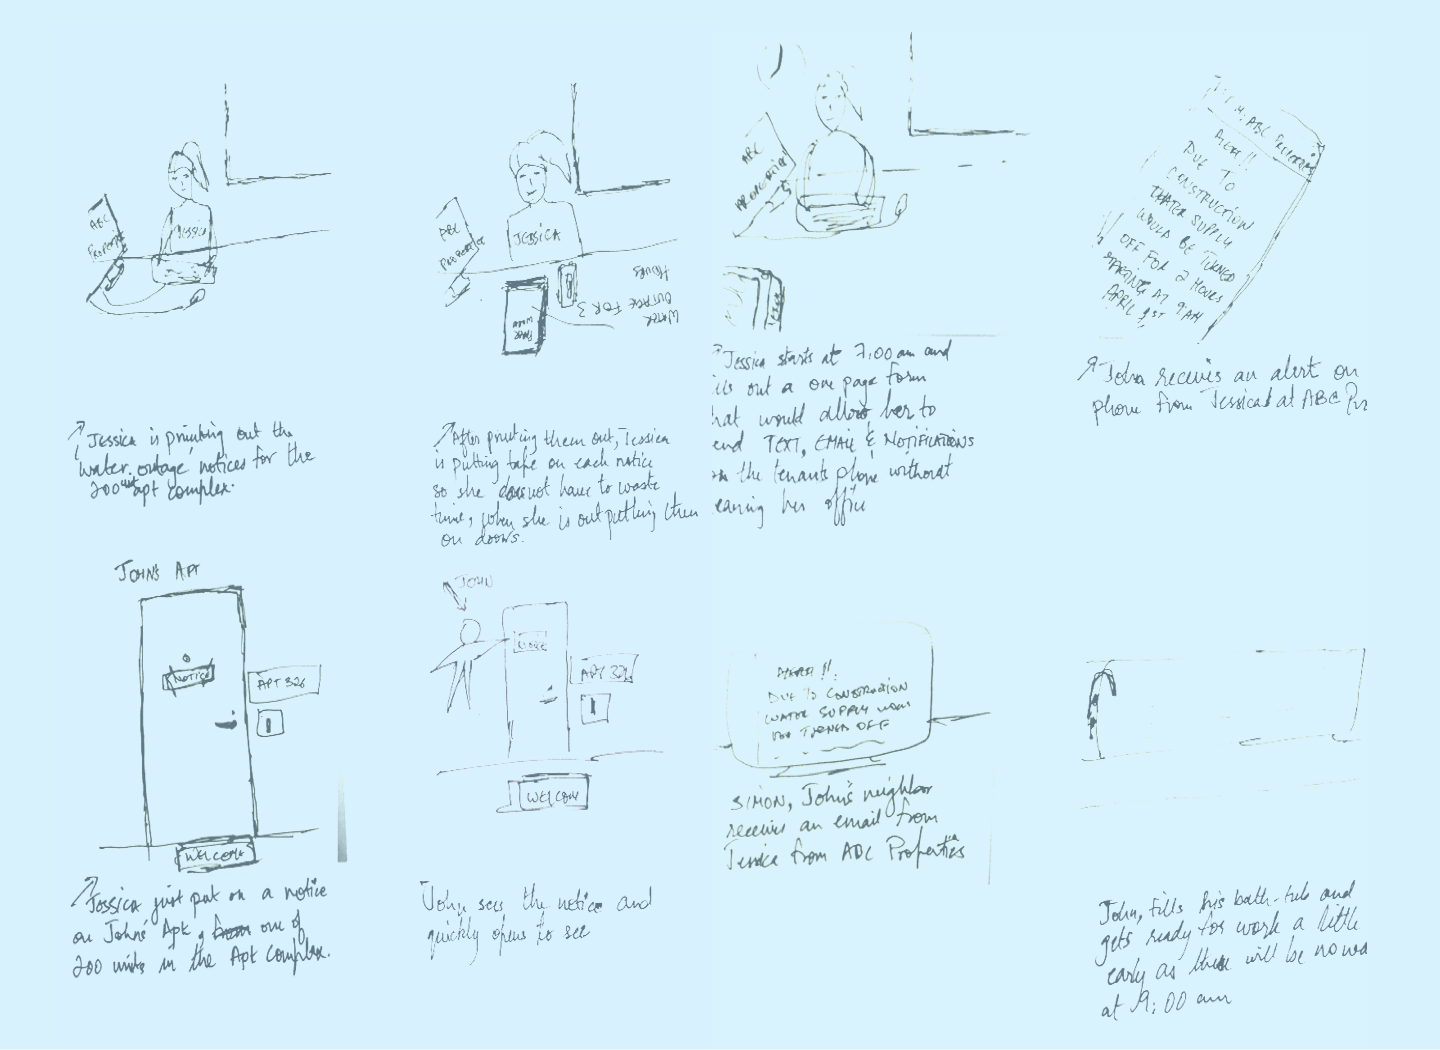 ABC
Jessica
Jessica is printing out the
water outage notices for the
200 unit apt complex.
ABC
JESSICA
WATER
OUTAGE FOR 3
HOURS
After printing them out, Jessica
is putting tape on each notice
so she does not have to waste
time, when she is out putting them
on doors.
ABC
PROPERTIES
Jessica starts at 7:00 am and
out a one page form
would allow her to
TEXT, EMAIL & NOTIFICATIONS
the tenants phone without
her office
ABC PROPERTIES
ALERT!!
DUE TO
CONSTRUCTION
WATER SUPPLY
WOULD BE TURNED
OFF FOR 2 HOURS
STARTING AT 9AM
APRIL 1ST
John receives an alert on
phone from Jessica at ABC
JOHN'S APT
NOTICE
APT 326
WELCOME
Jessica just put on a notice
on Johns' Apt, from one of
200 units in the Apt Complex.
JOHN
NOTICE
APT 326
WELCOM
John sees the notice and
quickly opens to see
ALERT!!
DUE TO CONSTRUCTION
WATER SUPPLY
TURNED OFF
SIMON, John's neighbor
receives an email from
Jessica from ABC Properties
John, fills his bath-tub and
gets ready for work a little
early as there will be no wa
at 9:00 am